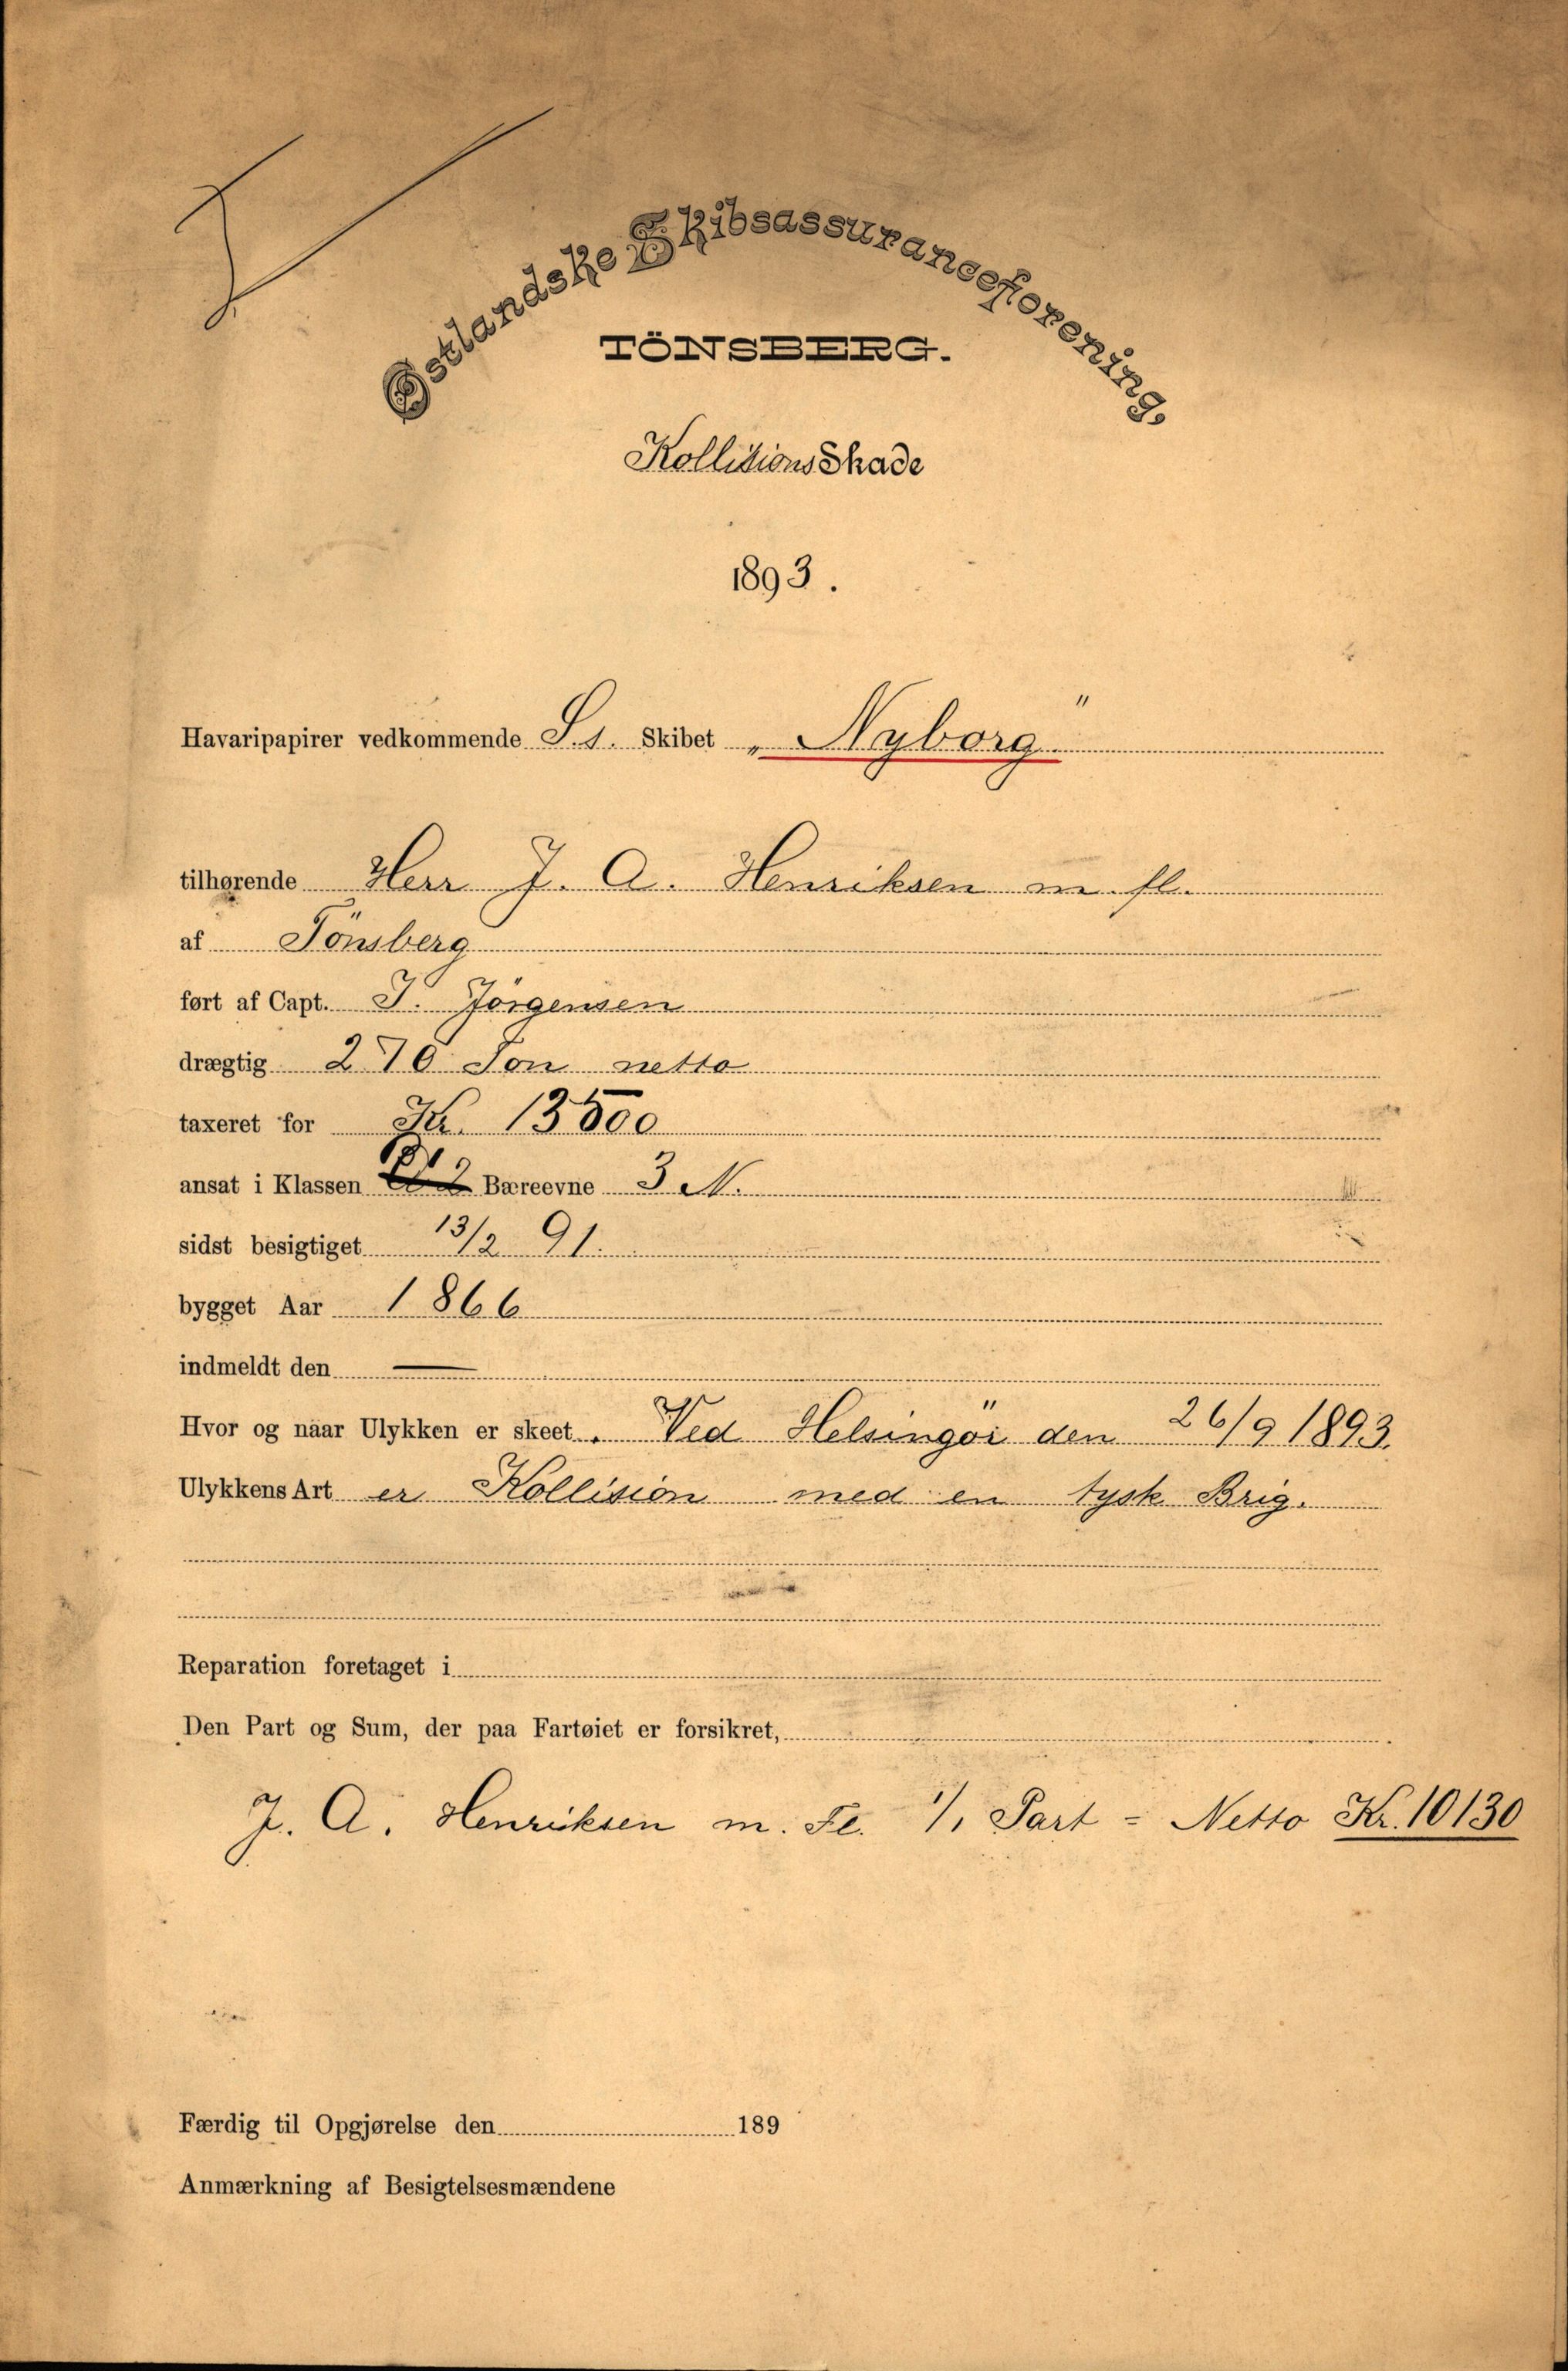 Østlandske Skibsassuranceforening,
TÖNSBERG.
Kollisions Skade
1893.
Havaripapirer vedkommende S.s. Skibet „Nyborg"
tilhørende Herr J. A. Henriksen m. fl.
af Tönsberg
ført af Capt. J. Jörgensen
drægtig 270 Ton netto
taxeret for Kr. 13500
ansat i Klassen Bæreevne 3 N.
sidst besigtiget 13/2 91.
bygget Aar 1866
indmeldt den —
Hvor og naar Ulykken er skeet. Ved Helsingör den 26/9 1893.
Ulykkens Art er Kollision med en tysk Brig.
Reparation foretaget i
Den Part og Sum, der paa Fartøiet er forsikret,
J. A. Henriksen m. Fl. 1/1 Part = Netto Kr. 10130
Færdig til Opgjørelse den 189
Anmærkning af Besigtelsesmændene